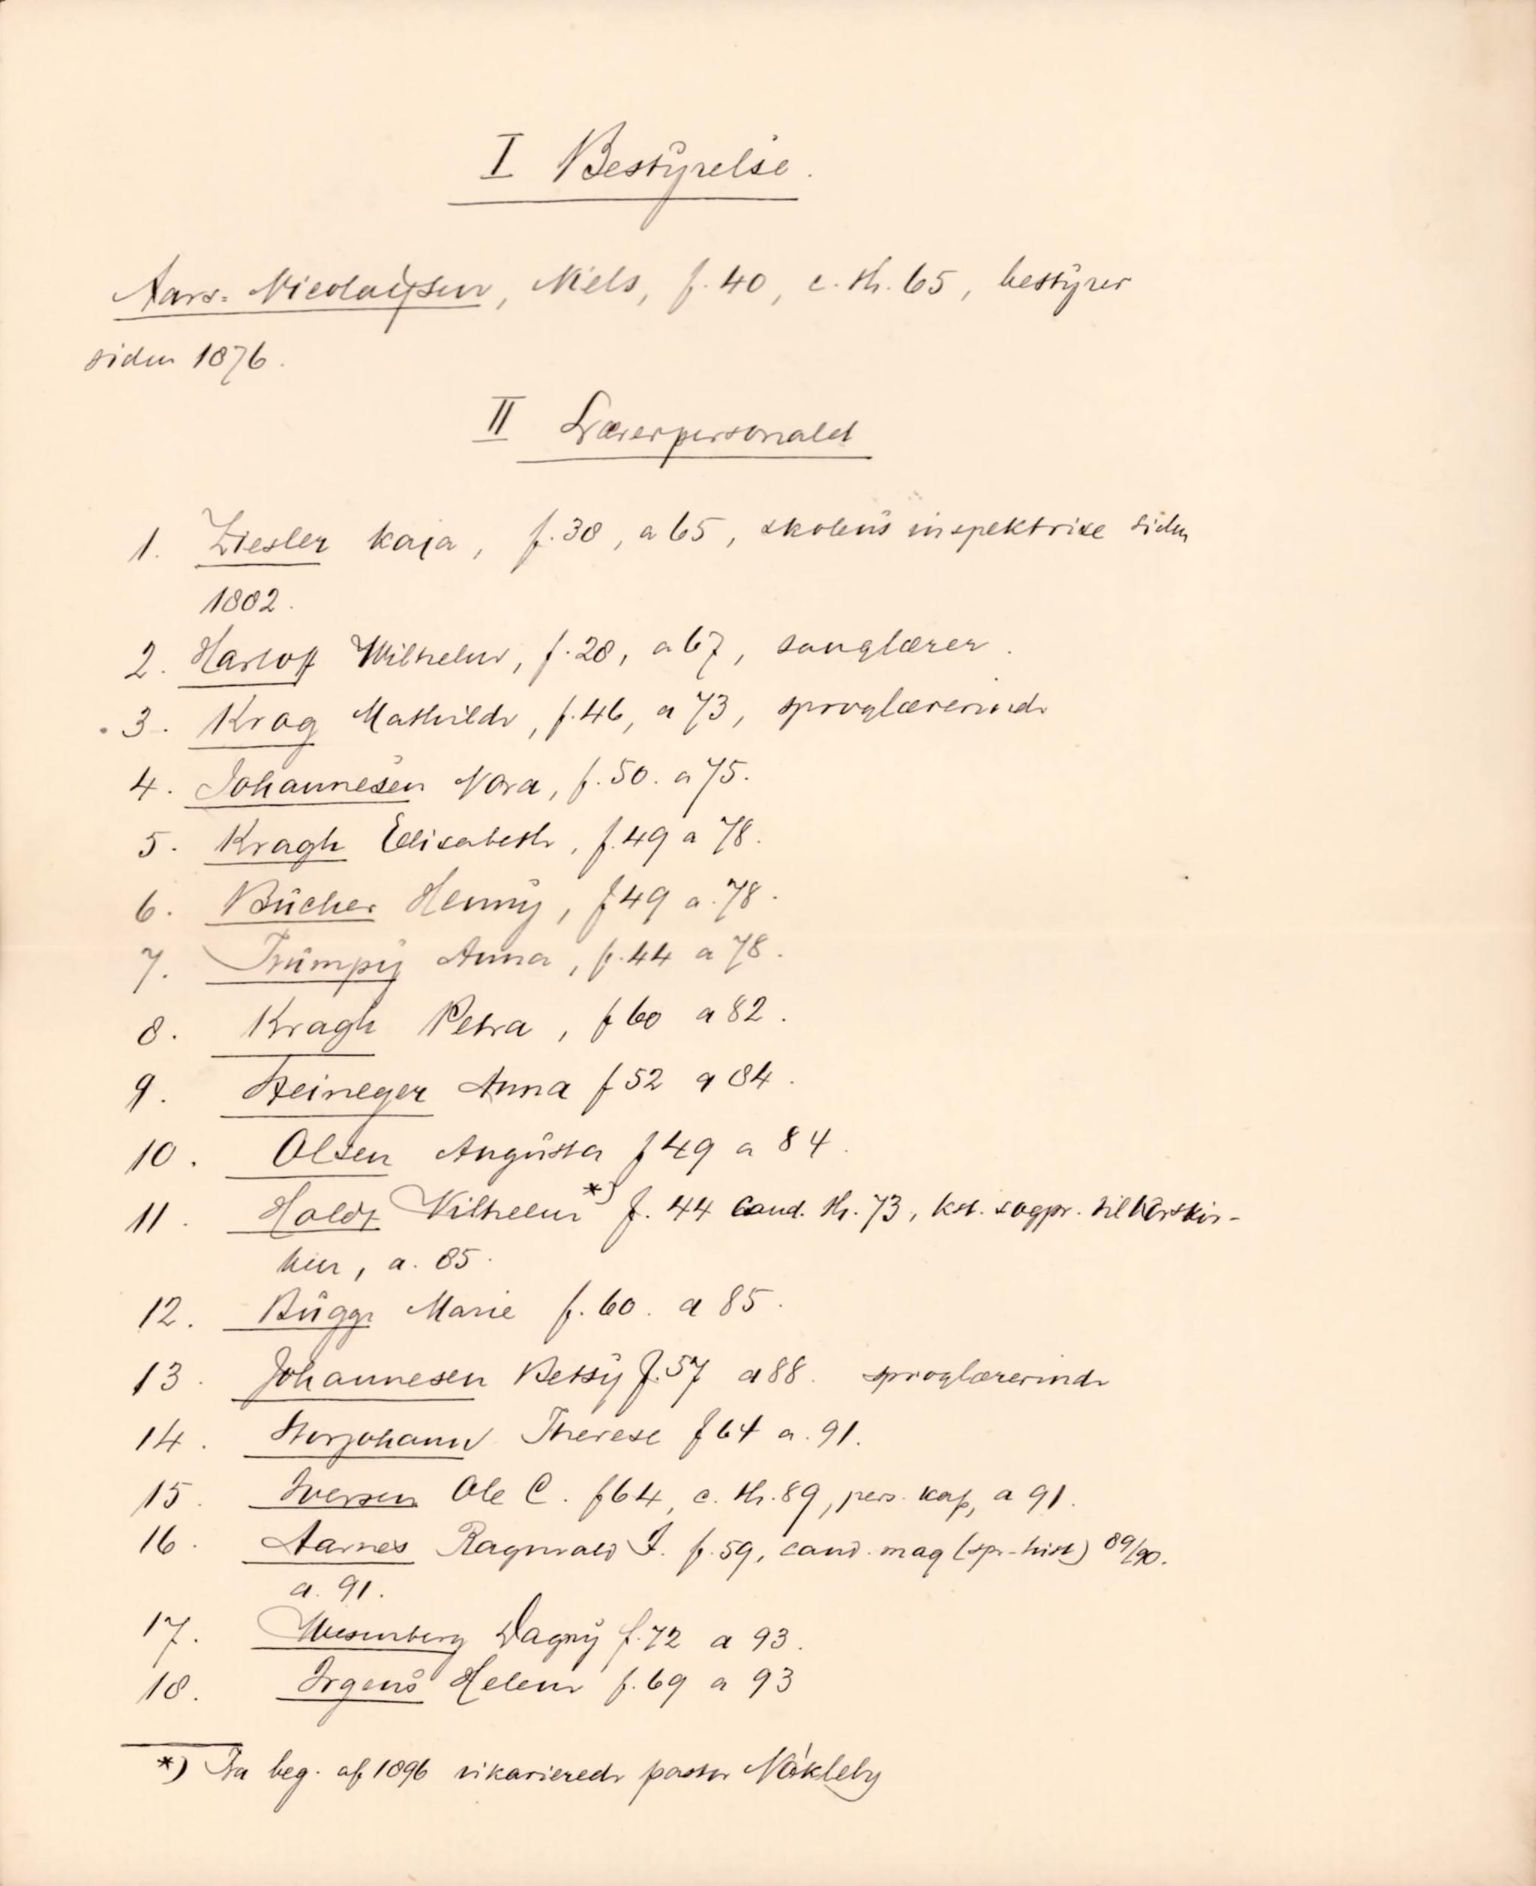 I Bestyrelse.
Aars-Nicolaysen, Niels, f. 40, c. th. 65, bestyrer
siden 1876.
II Lærerpersonalet
1. Ziesler Kaja, f. 38, a 65, skolens inspektrise siden
1882.
2. Harloff Wilhelm, f. 28, a 67, sanglærer.
3. Krag Mathilde, f. 46, a 73, sproglærerinde
4. Johannesen Nora, f. 50. a 75.
5. Kragh Elisabeth, f. 49 a 78.
6. Bücher Henny, f 49 a. 78.
7. Trumpy Anna, f. 44 a 78.
8. Kragh Petra, f 60 a 82.
9. Heineger Anna f 52 a 84.
10. Olsen Augusta f 49 a 84.
11. Holdt Vilhelm *) f. 44 Cand. th. 73, kst. sogpr. til Korskir-
ken, a. 85.
12. Bugge Marie f. 60. a 85.
13. Johannesen Betsy f. 57 a 88. sproglærerinde
14. Storjohann Therese f 64 a. 91.
15. Iversen Ole C. f 64, c. th. 89, pers. kap, a 91.
16. Aarnes Ragnvald I. f. 59, cand. mag (spr-hist) 89/90.
a. 91.
17. Wesenberg Dagny f. 72 a 93.
18. Irgens Helene f. 69 a 93
*) Fra beg. af 1896 vikarierede pastor Nökleby